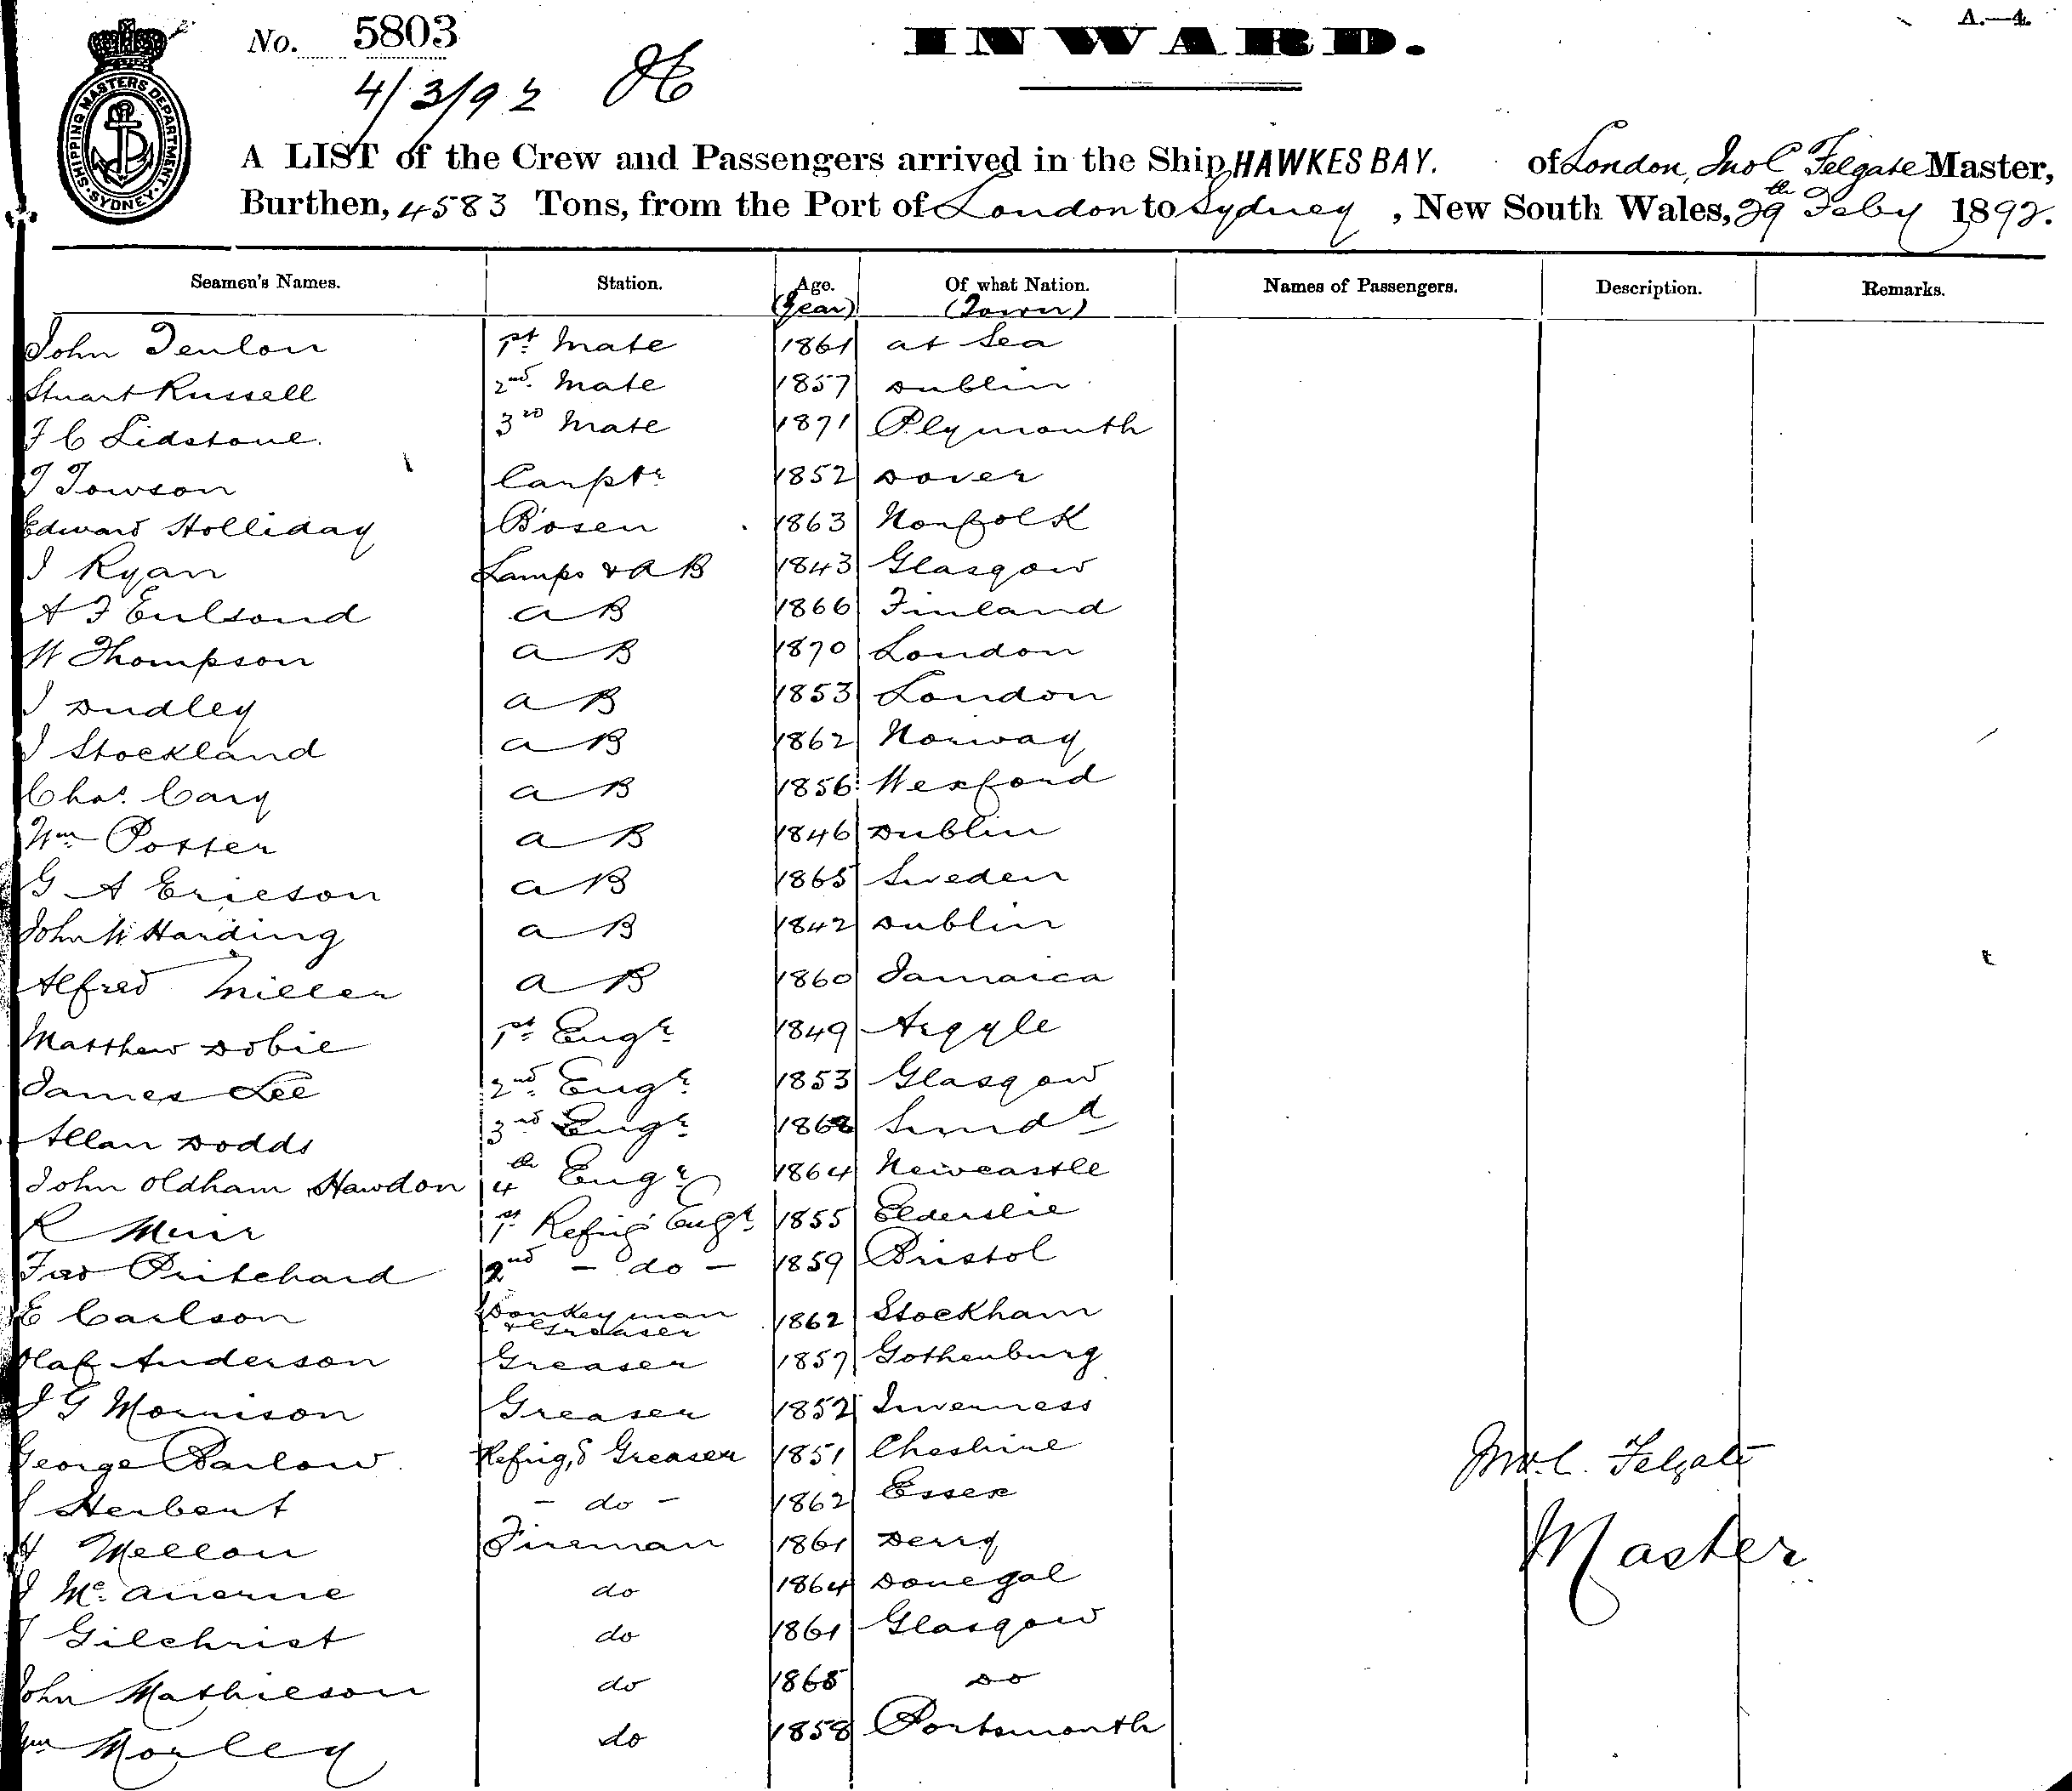 No. 5803
INWARD.
A.—4.
4/3/92
SHIPPING MASTERS DEPARTMENT. SYDNEY.
A LIST of the Crew and Passengers arrived in the Ship HAWKES BAY. of London, Jno C Felgate Master,
Burthen, 4583 Tons, from the Port of London to Sydney, New South Wales, 29th Feby 1892.
Seamen's Names. Station. Age. Of what Nation. Names of Passengers. Description. Remarks.
(Year) (Town)
John Denlon 1st Mate 1861 at Sea
Stuart Russell 2nd Mate 1857 Dublin
F C Lidstone. 3rd Mate 1871 Plymouth
T Towson Carptr 1852 Dover
Edward Holliday Bosen 1863 Norfolk
J Ryan Lamps & AB 1843 Glasgow
A F 1866 Finland
a B
W Thompson a B 1870 London
J Dudley a B 1853 London
J Stockland a B 1862 Norway
Chas. Cary a B 1856 Wexford
Wm Potter a B 1846 Dublin
G A Ericson a B 1865 Sweden
John W Harding a B 1842 Dublin
Alfred Miller a B 1860 Jamaica
Matthew Dobie 1st Engr 1849 Argyle
James Lee 2nd Engr 1853 Glasgow
Allan Dodds 3rd Engr 1868 Sundd
John Oldham Hawdon 4th Engr 1864 Newcastle
R Muir 1st Refrig Engr 1855 Elderslie
Pritchard 2nd - do - 1859 Bristol
E Carlson Donkeyman & Greaser 1862 Stockham
Olaf Anderson Greaser 1857 Gothenburg
J G Morrison Greaser 1852 Inverness
George Barlow. Refrig,g Greaser 1851 Cheshire
J Herbert - do - 1862 Essex
H Mellon Fireman 1861 Derry
J do 1864 Donegal
J Gilchrist do 1861 Glasgow
John Mathieson do 1865 Do
Wm Morley do 1858 Portsmouth
Jno. C. Felgate
Master